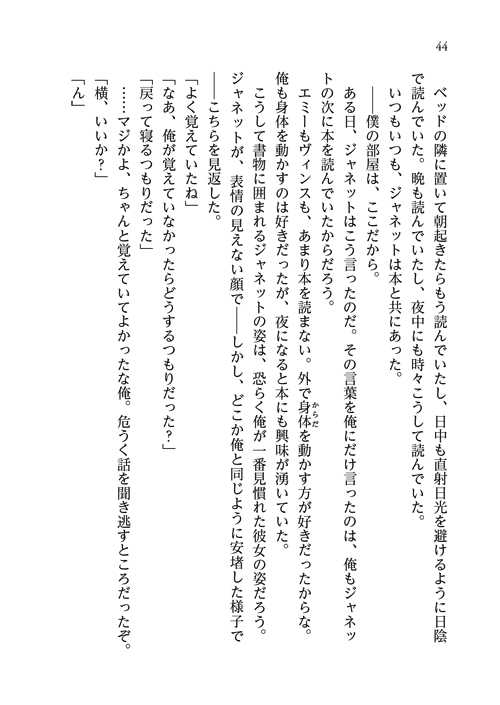 44
　ベッドの隣に置いて朝起きたらもう読んでいたし、日中も直射日光を避けるように日陰
で読んでいた。晩も読んでいたし、夜中にも時々こうして読んでいた。
　いつもいつも、ジャネットは本と共にあった。
　――僕の部屋は、ここだから。
　ある日、ジャネットはこう言ったのだ。その言葉を俺にだけ言ったのは、俺もジャネッ
トの次に本を読んでいたからだろう。
　エミーもヴィンスも、あまり本を読まない。外で身体からだを動かす方が好きだったからな。
俺も身体を動かすのは好きだったが、夜になると本にも興味が湧いていた。
　こうして書物に囲まれるジャネットの姿は、恐らく俺が一番見慣れた彼女の姿だろう。
ジャネットが、表情の見えない顔で――しかし、どこか俺と同じように安堵した様子で
――こちらを見返した。
「よく覚えていたね」
「なあ、俺が覚えていなかったらどうするつもりだった？」
「戻って寝るつもりだった」
　……マジかよ、ちゃんと覚えていてよかったな俺。危うく話を聞き逃すところだったぞ。
「横、いいか？」
「ん」